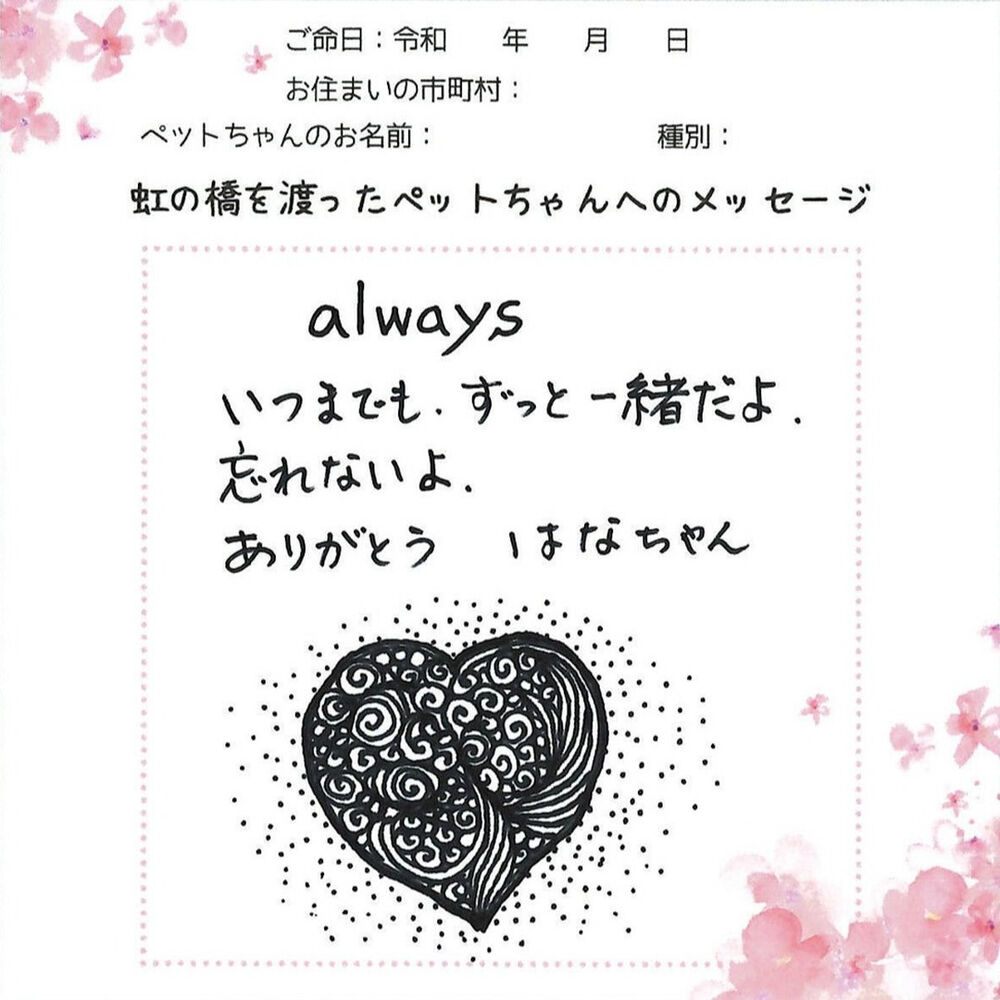 ご命日：令和　　年　　月　　日
お住まいの市町村：
ペットちゃんのお名前：　　　　　　　　種別：
虹の橋を渡ったペットちゃんへのメッセージ
always
いつまでも、ずっと一緒だよ.
忘れないよ.
ありがとう　はなちゃん